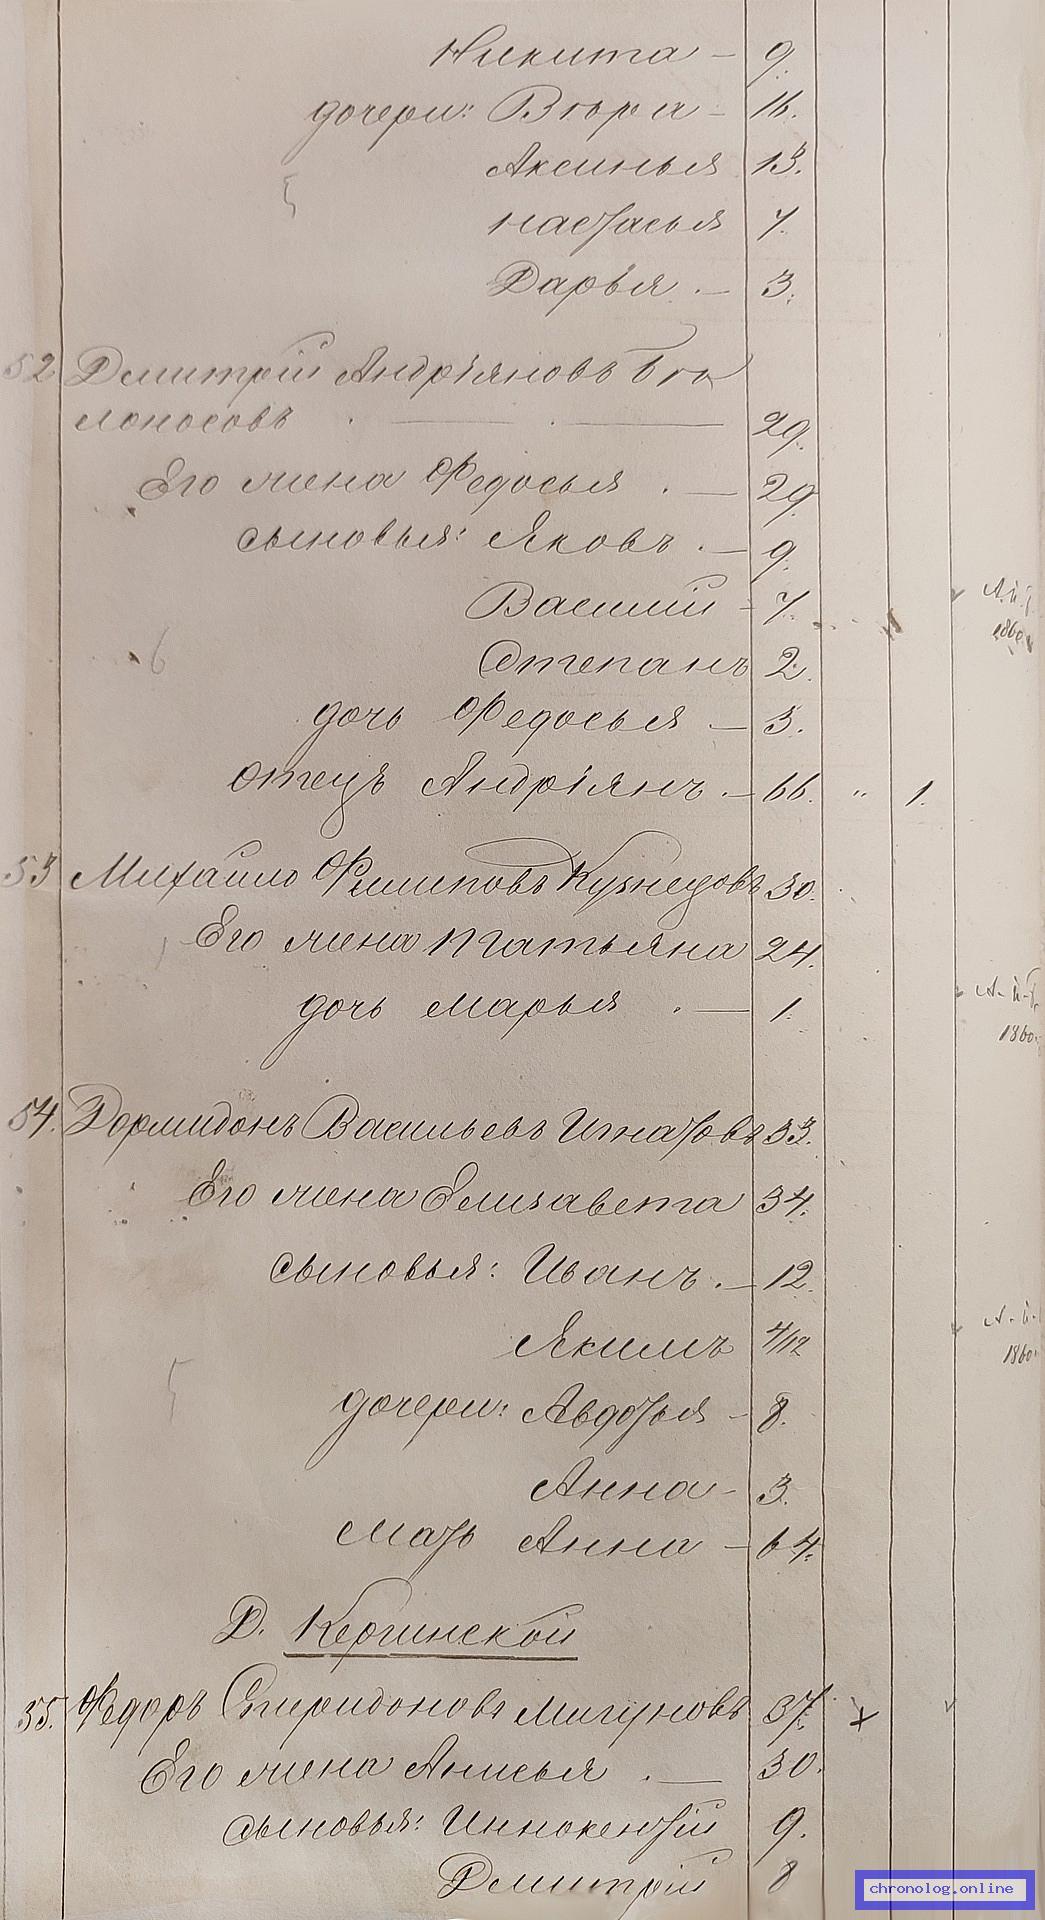 Никита - 9.
дочери: Вѣра - 16.
Аксинья 13.
Настасья 7.
Дарья . - 3.
52 Дмитрій Андріяновъ Бѣ
лоносовъ . — . — 29.
Его жена Федосья . — 29
сыновья: Яковъ . — 9.
Василій - 7.
А. й.
Степанъ 2.
дочь Федосья — 5.
отецъ Андріянъ . — 66. " 1.
53 Михайло Филиповъ Кузнецовъ 30.
Его жена Татьяна 24.
А. й.
дочь Марья . — 1.
1860
54. Дормидонъ Васильевъ Игнатовъ 33.
Его жена Елизавета 34.
сыновья: Иванъ . — 12.
А. й.
Якимъ 4/12
1860
дочери: Авдотья - 8.
Анна - 3.
мать Анна - 64.
Д. Кергинской
55. Федоръ Спиридоновъ Мигуновъ 37.
Его жена Анисья . — 30.
сыновья: Иннокентій 9.
Дмитрій 8
chronolog.online